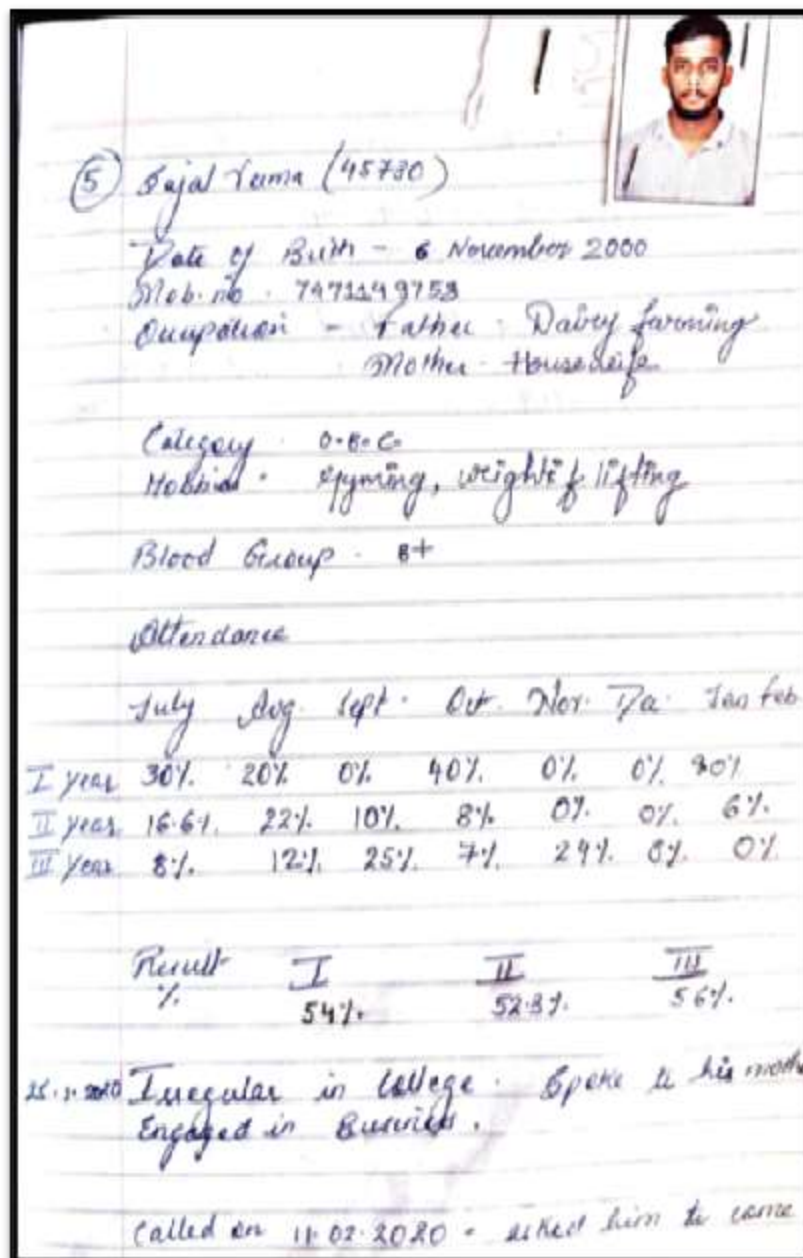 5 Sajal Verma (45730)
Date of Birth - 6 November 2000
Mob. no. 7471149753
Occupation - Father - Dairy farming
Mother - Housewife
Category . O.B.C.
Hobbies . Gyming, weight lifting
Blood Group . B+
Attendance
July Aug. Sept. Oct. Nov. Jan Feb
I year 30%. 20% 0% 40%. 0% 0%
II year 16.6%. 22%. 10%. 8% 0%. 0% 6%.
III year 8%. 12%. 25%. 7% 0%
Result I II III
% 54%. 52.3%. 56%.
Irregular in College. Spoke to his
Engaged in Business.
Called on 11.02.2020 - asked him to come